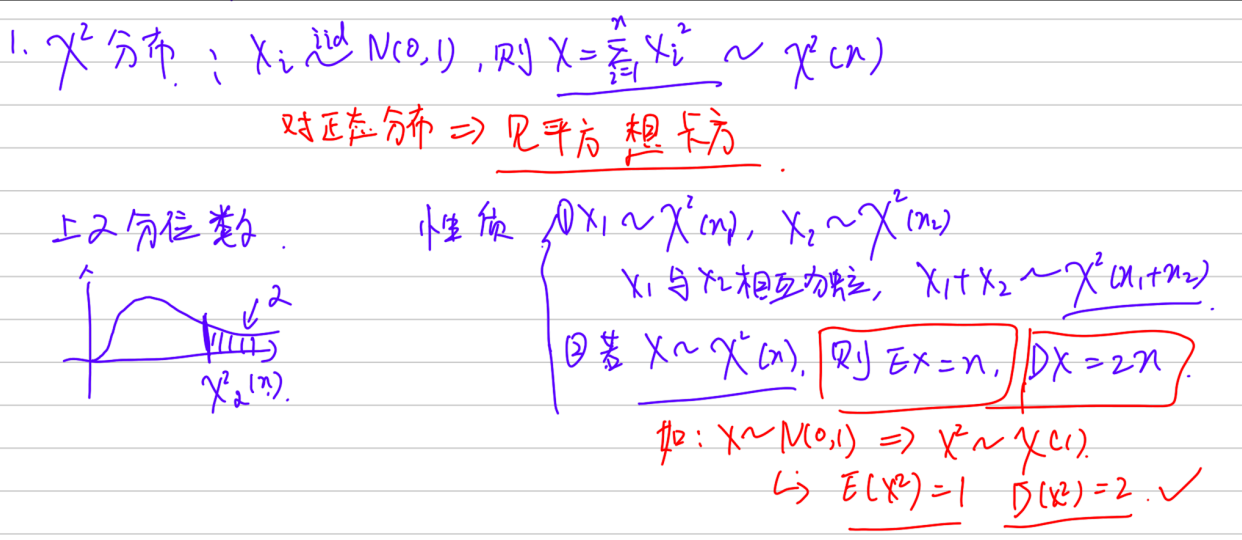 1. χ² 分布 : Xᵢ iid~ N(0,1), 则 X = Σᵢ₌₁ⁿ Xᵢ² ~ χ²(n)
对正态分布 ⇒ 见平方 想 卡方.
上α分位数.
α
χ²α(n).
性质 ① X₁ ~ χ²(n₁), X₂ ~ χ²(n₂)
X₁与X₂相互独立, X₁+X₂ ~ χ²(n₁+n₂).
② 若 X ~ χ²(n), 则 EX = n, DX = 2n.
如: X ~ N(0,1) ⇒ X² ~ χ(1).
↳ E(X²) = 1 D(X²) = 2. ✓